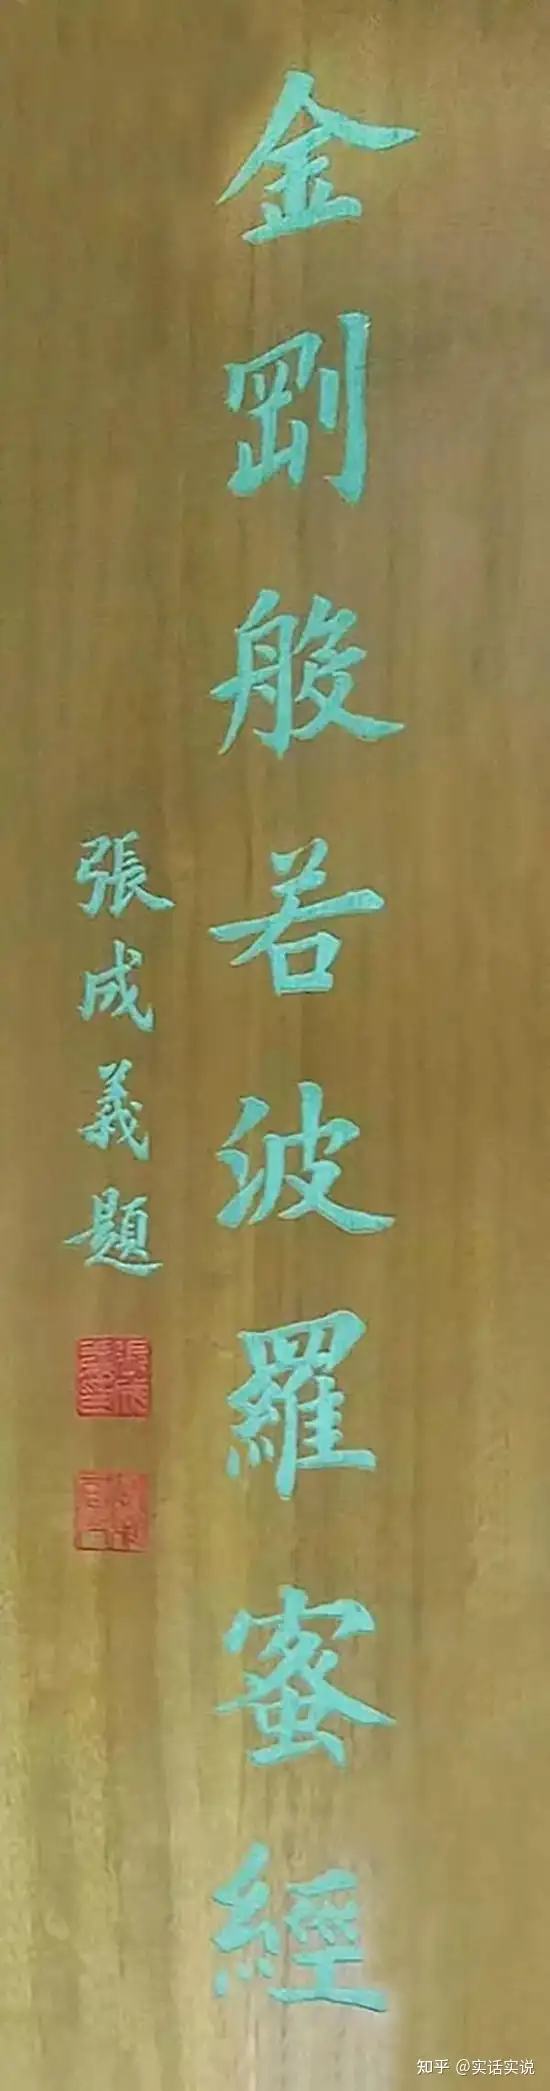 金剛般若波羅蜜經
張成義題
知乎 @实话实说